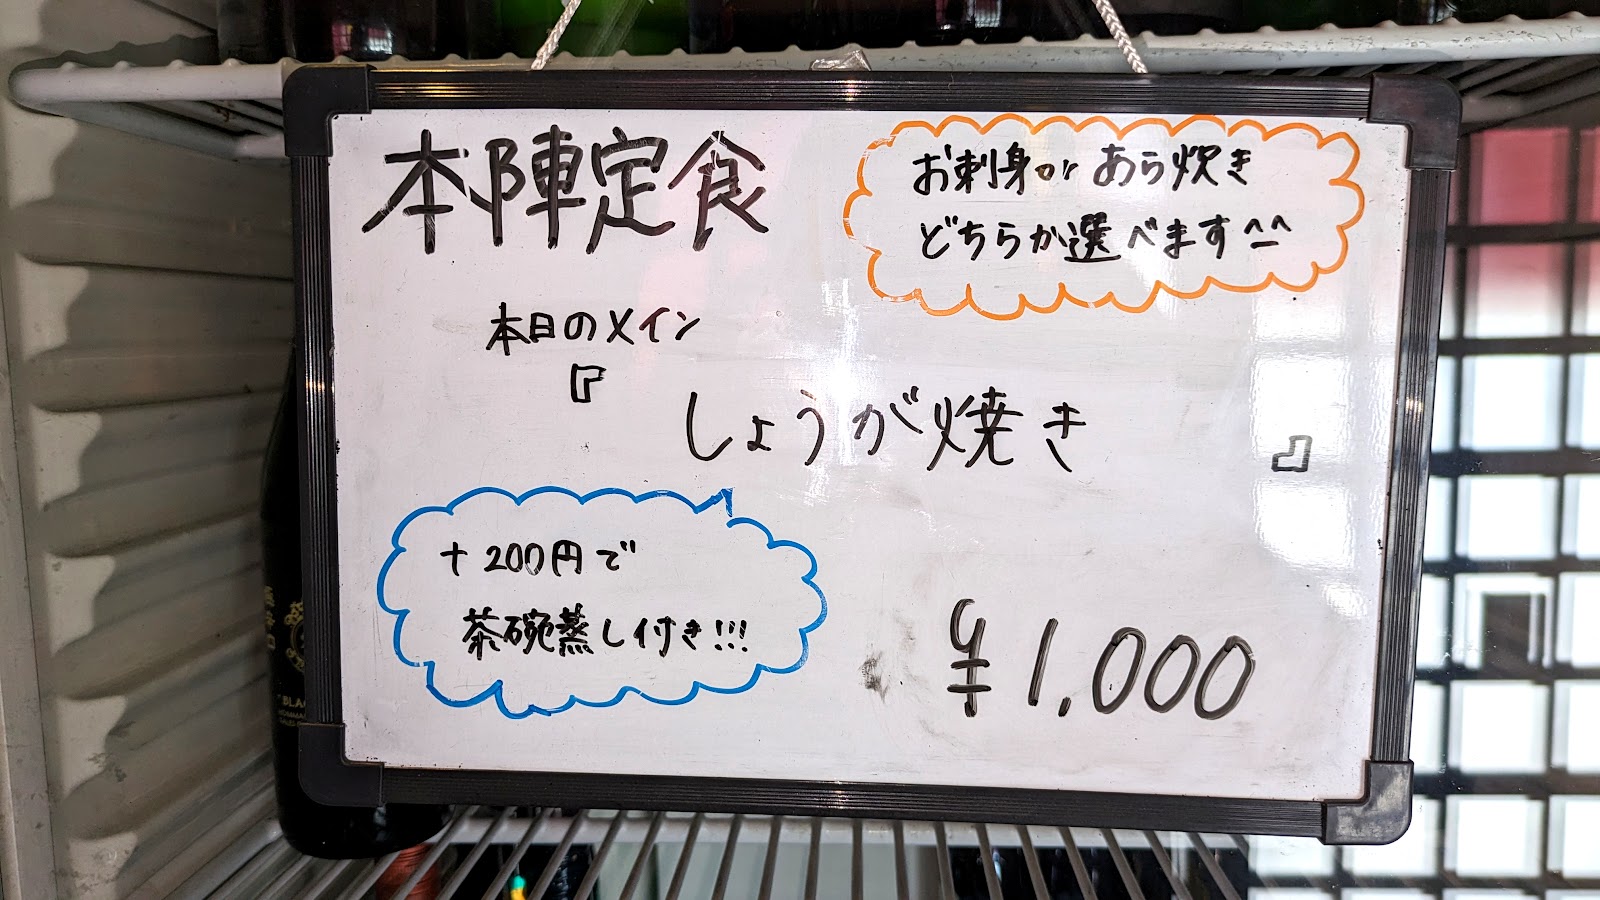 本陣定食
お刺身or あら炊き
どちらか選べます^_^
本日のメイン
『しょうが焼き』
+200円で
茶碗蒸し付き!!!
¥1,000